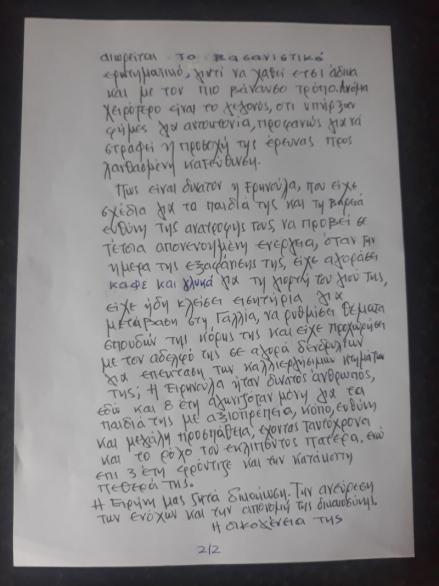 αιωρείται το βασανιστικό
ερωτηματικό, γιατί να χαθεί έτσι άδικα
και με τον πιο βάναυσο τρόπο. Ακόμα
χειρότερο είναι το γεγονός, ότι υπήρξαν
φήμες για αυτοκτονία, προφανώς για να
στραφεί η προσοχή της έρευνας προς
λανθασμένη κατεύθυνση.
Πως είναι δυνατόν η Ειρηνούλα, που είχε
σχέδια για τα παιδιά της και τη βαρειά
ευθύνη της ανατροφής τους, να προβεί σε
τέτοια απονενοημένη ενέργεια, όταν την
ημέρα της εξαφάνισής της, είχε αγοράσει
καφέ και γλυκά για τη γιορτή του γιού της,
είχε ήδη κλείσει εισητήρια για
μετάβαση στη Γαλλία, να ρυθμίσει θέματα
σπουδών της κόρης της και είχε προχωρήσει
με τον αδελφό της σε αγορά δενδρυλίων
για επένταση των καλλιεργήσιμων κτημάτων
της; Η Ειρηνούλα ήταν δυνατός άνθρωπος,
εδώ και 8 έτη αγωνιζόταν μόνη για τα
παιδιά της με αξιοπρέπεια, κόπο, ευθύνη
και μεγάλη προσπάθεια, έχοντας ταυτόχρονα
και το ρόλο του εκλιπόντος πατέρα, ενώ
επί 3 έτη φρόντιζε και την κατάκοιτη
πεθερά της.
Η Ειρήνη μας ζητά δικαίωση. Την ανεύρεση
των ενόχων και την απονομή της δικαιοσύνης.
Η οικογένειά της
2/2